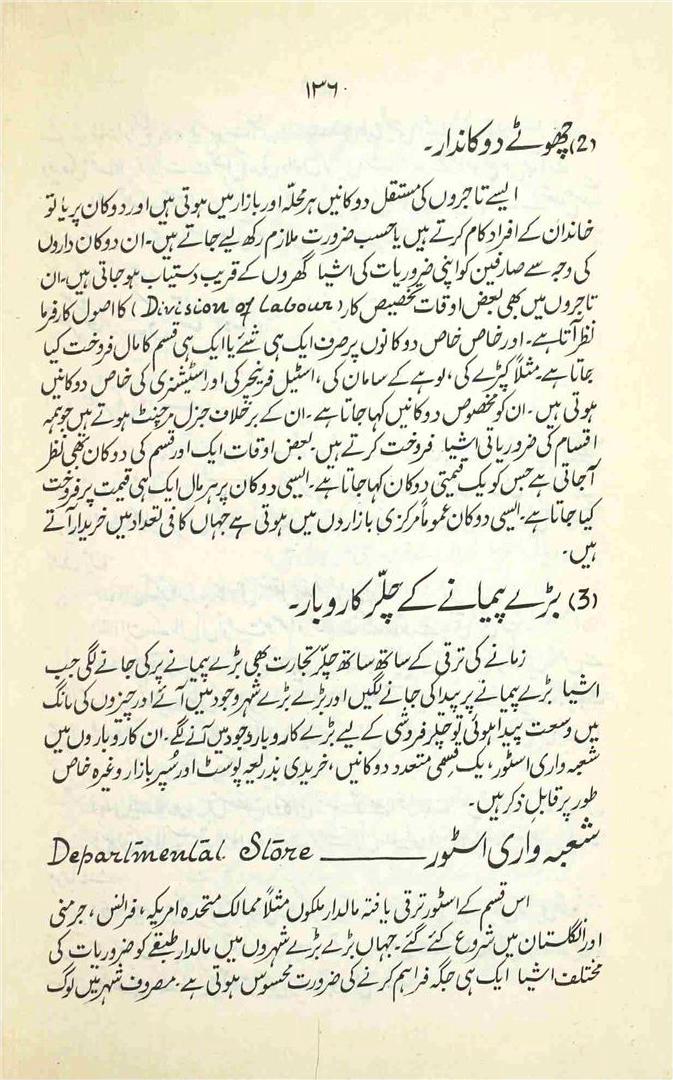 ۱۳۶
(2) چھوٹے دوکاندار۔
ایسے تاجروں کی مستقل دوکانیں ہر محلہ اور بازار میں ہوتی ہیں اور دوکان پر یا تو
خاندان کے افراد کام کرتے ہیں یا حسب ضرورت ملازم رکھ لیے جاتے ہیں۔ ان دوکان داروں
کی وجہ سے صارفین کو اپنی ضروریات کی اشیا گھروں کے قریب دستیاب ہو جاتی ہیں۔ ان
تاجروں میں بھی بعض اوقات تخصیص کار (Division of Labour) کا اصول کارفرما
نظر آتا ہے۔ اور خاص خاص دوکانوں پر صرف ایک ہی شئے یا ایک ہی قسم کا مال فروخت کیا
جاتا ہے۔ مثلاً کپڑے کی، لوہے کے سامان کی، اسٹیل فرنیچر کی اور اسٹیشنری کی خاص دوکانیں
ہوتی ہیں۔ ان کو مخصوص دوکانیں کہا جاتا ہے۔ ان کے برخلاف جنرل مرچنٹ ہوتے ہیں جو ہمہ
اقسام کی ضروریاتی اشیا فروخت کرتے ہیں۔ بعض اوقات ایک اور قسم کی دوکان بھی نظر
آجاتی ہے جس کو یک قیمتی دوکان کہا جاتا ہے۔ ایسی دوکان پر ہر مال ایک ہی قیمت پر فروخت
کیا جاتا ہے۔ ایسی دوکان عموماً مرکزی بازاروں میں ہوتی ہے جہاں کافی تعداد میں خریدار آتے
ہیں۔
(3) بڑے پیمانے کے چلّر کاروبار۔
زمانے کی ترقی کے ساتھ ساتھ چلّر تجارت بھی بڑے پیمانے پر کی جانے لگی جب
اشیا بڑے پیمانے پر پیدا کی جانے لگیں اور بڑے بڑے شہر وجود میں آئے اور چیزوں کی مانگ
میں وسعت پیدا ہوئی تو چلر فروشی کے لیے بڑے کاروبار وجود میں آنے لگے۔ ان کاروباروں میں
شعبہ واری اسٹور، یک قسمی متعدد دوکانیں، خریدی بذریعہ پوسٹ اور سُپر بازار وغیرہ خاص
طور پر قابل ذکر ہیں۔
شعبہ واری اسٹور ——— Departmental Store
اس قسم کے اسٹور ترقی یافتہ مالدار ملکوں مثلاً ممالک متحدہ امریکہ، فرانس، جرمنی
اور انگلستان میں شروع کئے گئے۔ جہاں بڑے بڑے شہروں میں مالدار طبقے کو ضروریات کی
مختلف اشیا ایک ہی جگہ فراہم کرنے کی ضرورت محسوس ہوتی ہے۔ مصروف شہر میں لوگ